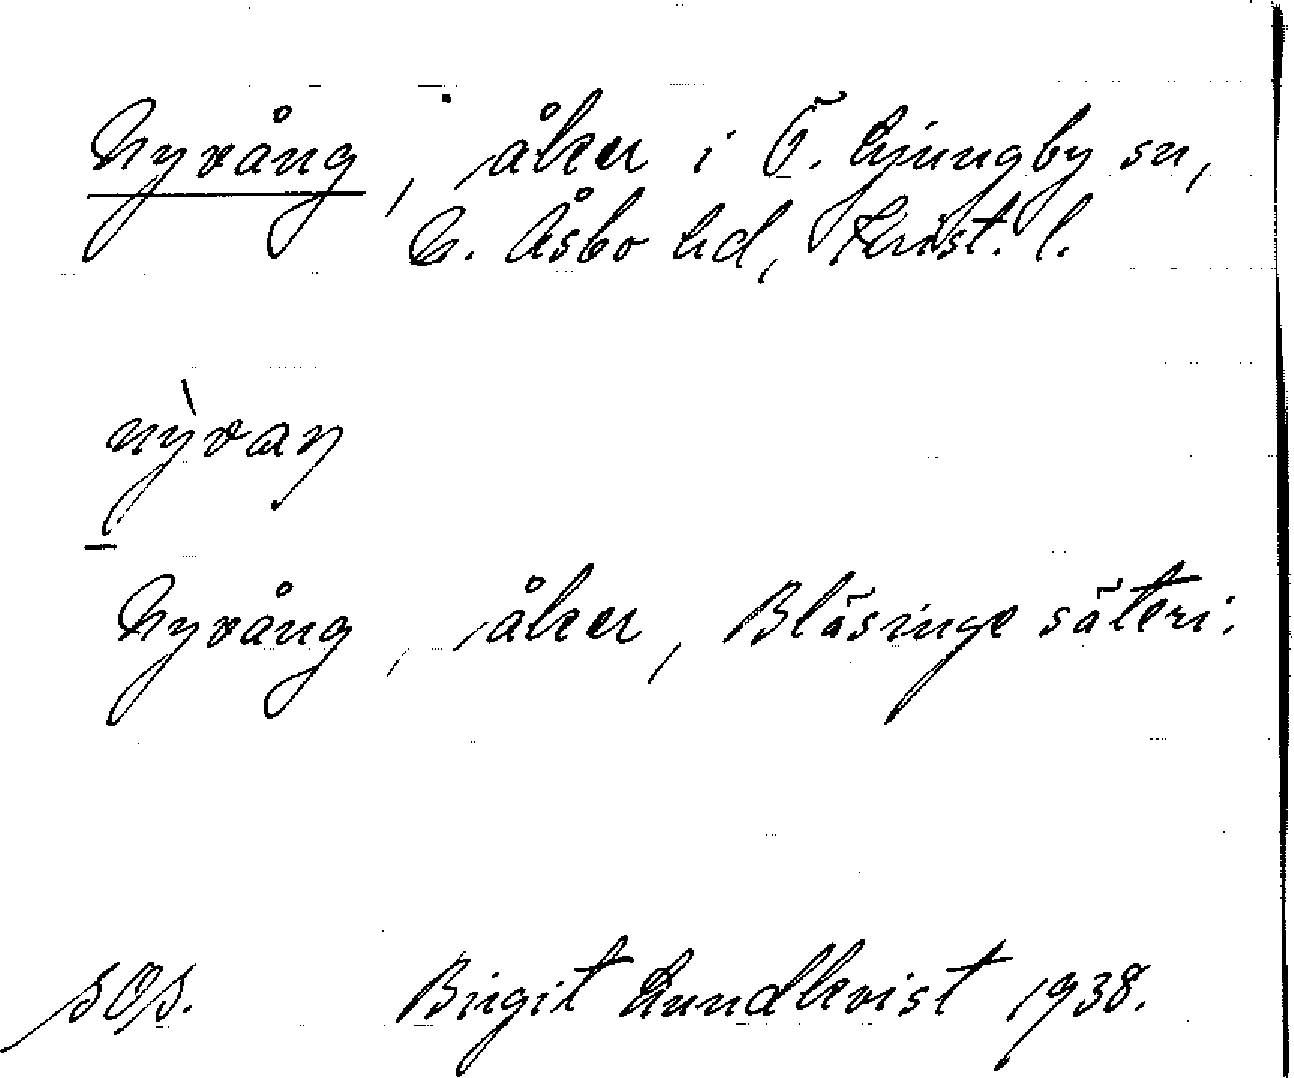 Nyvång, åker i Ö. Ljungby sn,
N. Åsbo hd, Krist. l.
nỳvaŋ
Nyvång, åker, Bläsinge säteri.
SOS. Birgit Lundkvist 1938.